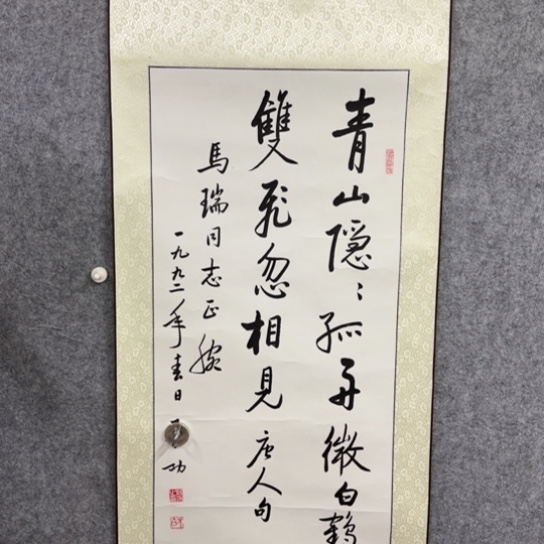 青山隱〻孤舟微白鶴
雙飛忽相見唐人句
馬瑞同志正腕
一九九二年春日 功